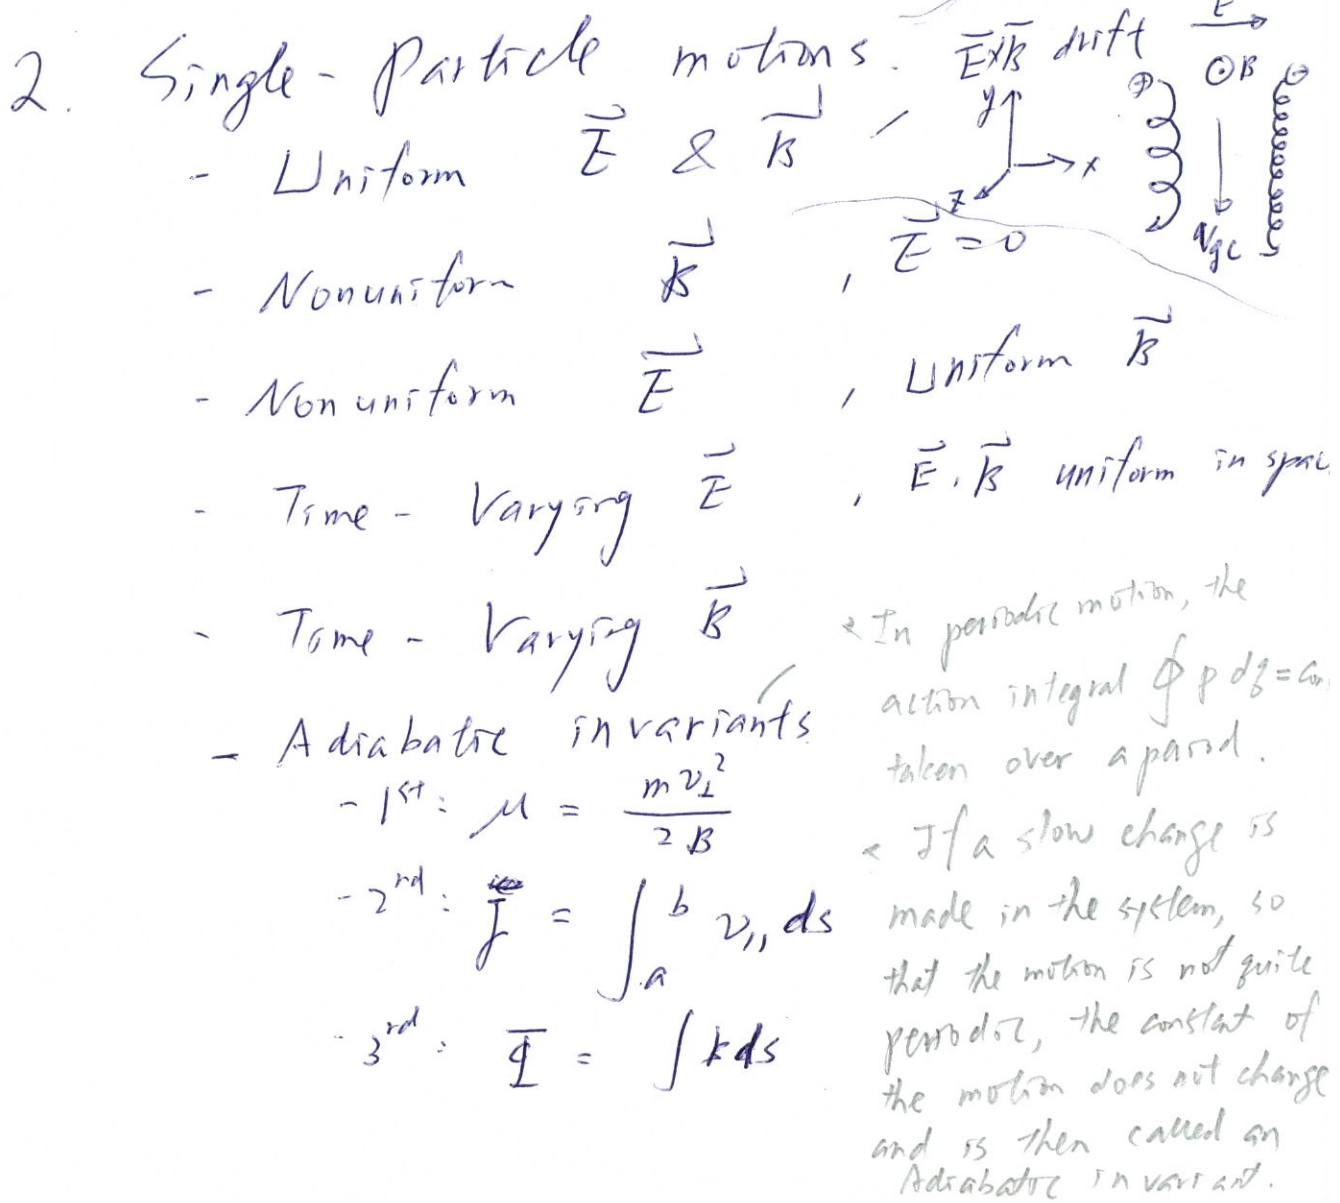 2. Single-Particle motions. E⃗×B⃗ drift
E⃗
⊙B
⊕ ⊖
y
x
z
v_gc
- Uniform E⃗ & B⃗
- Nonuniform B⃗ , E⃗ = 0
- Nonuniform E⃗ , Uniform B⃗
- Time-Varying E⃗ , E⃗, B⃗ uniform in spac
- Time-Varying B⃗
- Adiabatic invariants
- 1st : μ = mv⊥² / 2B
- 2rd : J = ∫_a^b v_∥ ds
- 3rd : Φ = ∫ k ds
* In periodic motion, the
action integral ∮ p dq = con
taken over a period.
* If a slow change is
made in the system, so
that the motion is not quite
periodic, the constant of
the motion does not change
and is then called an
Adiabatic invariant.